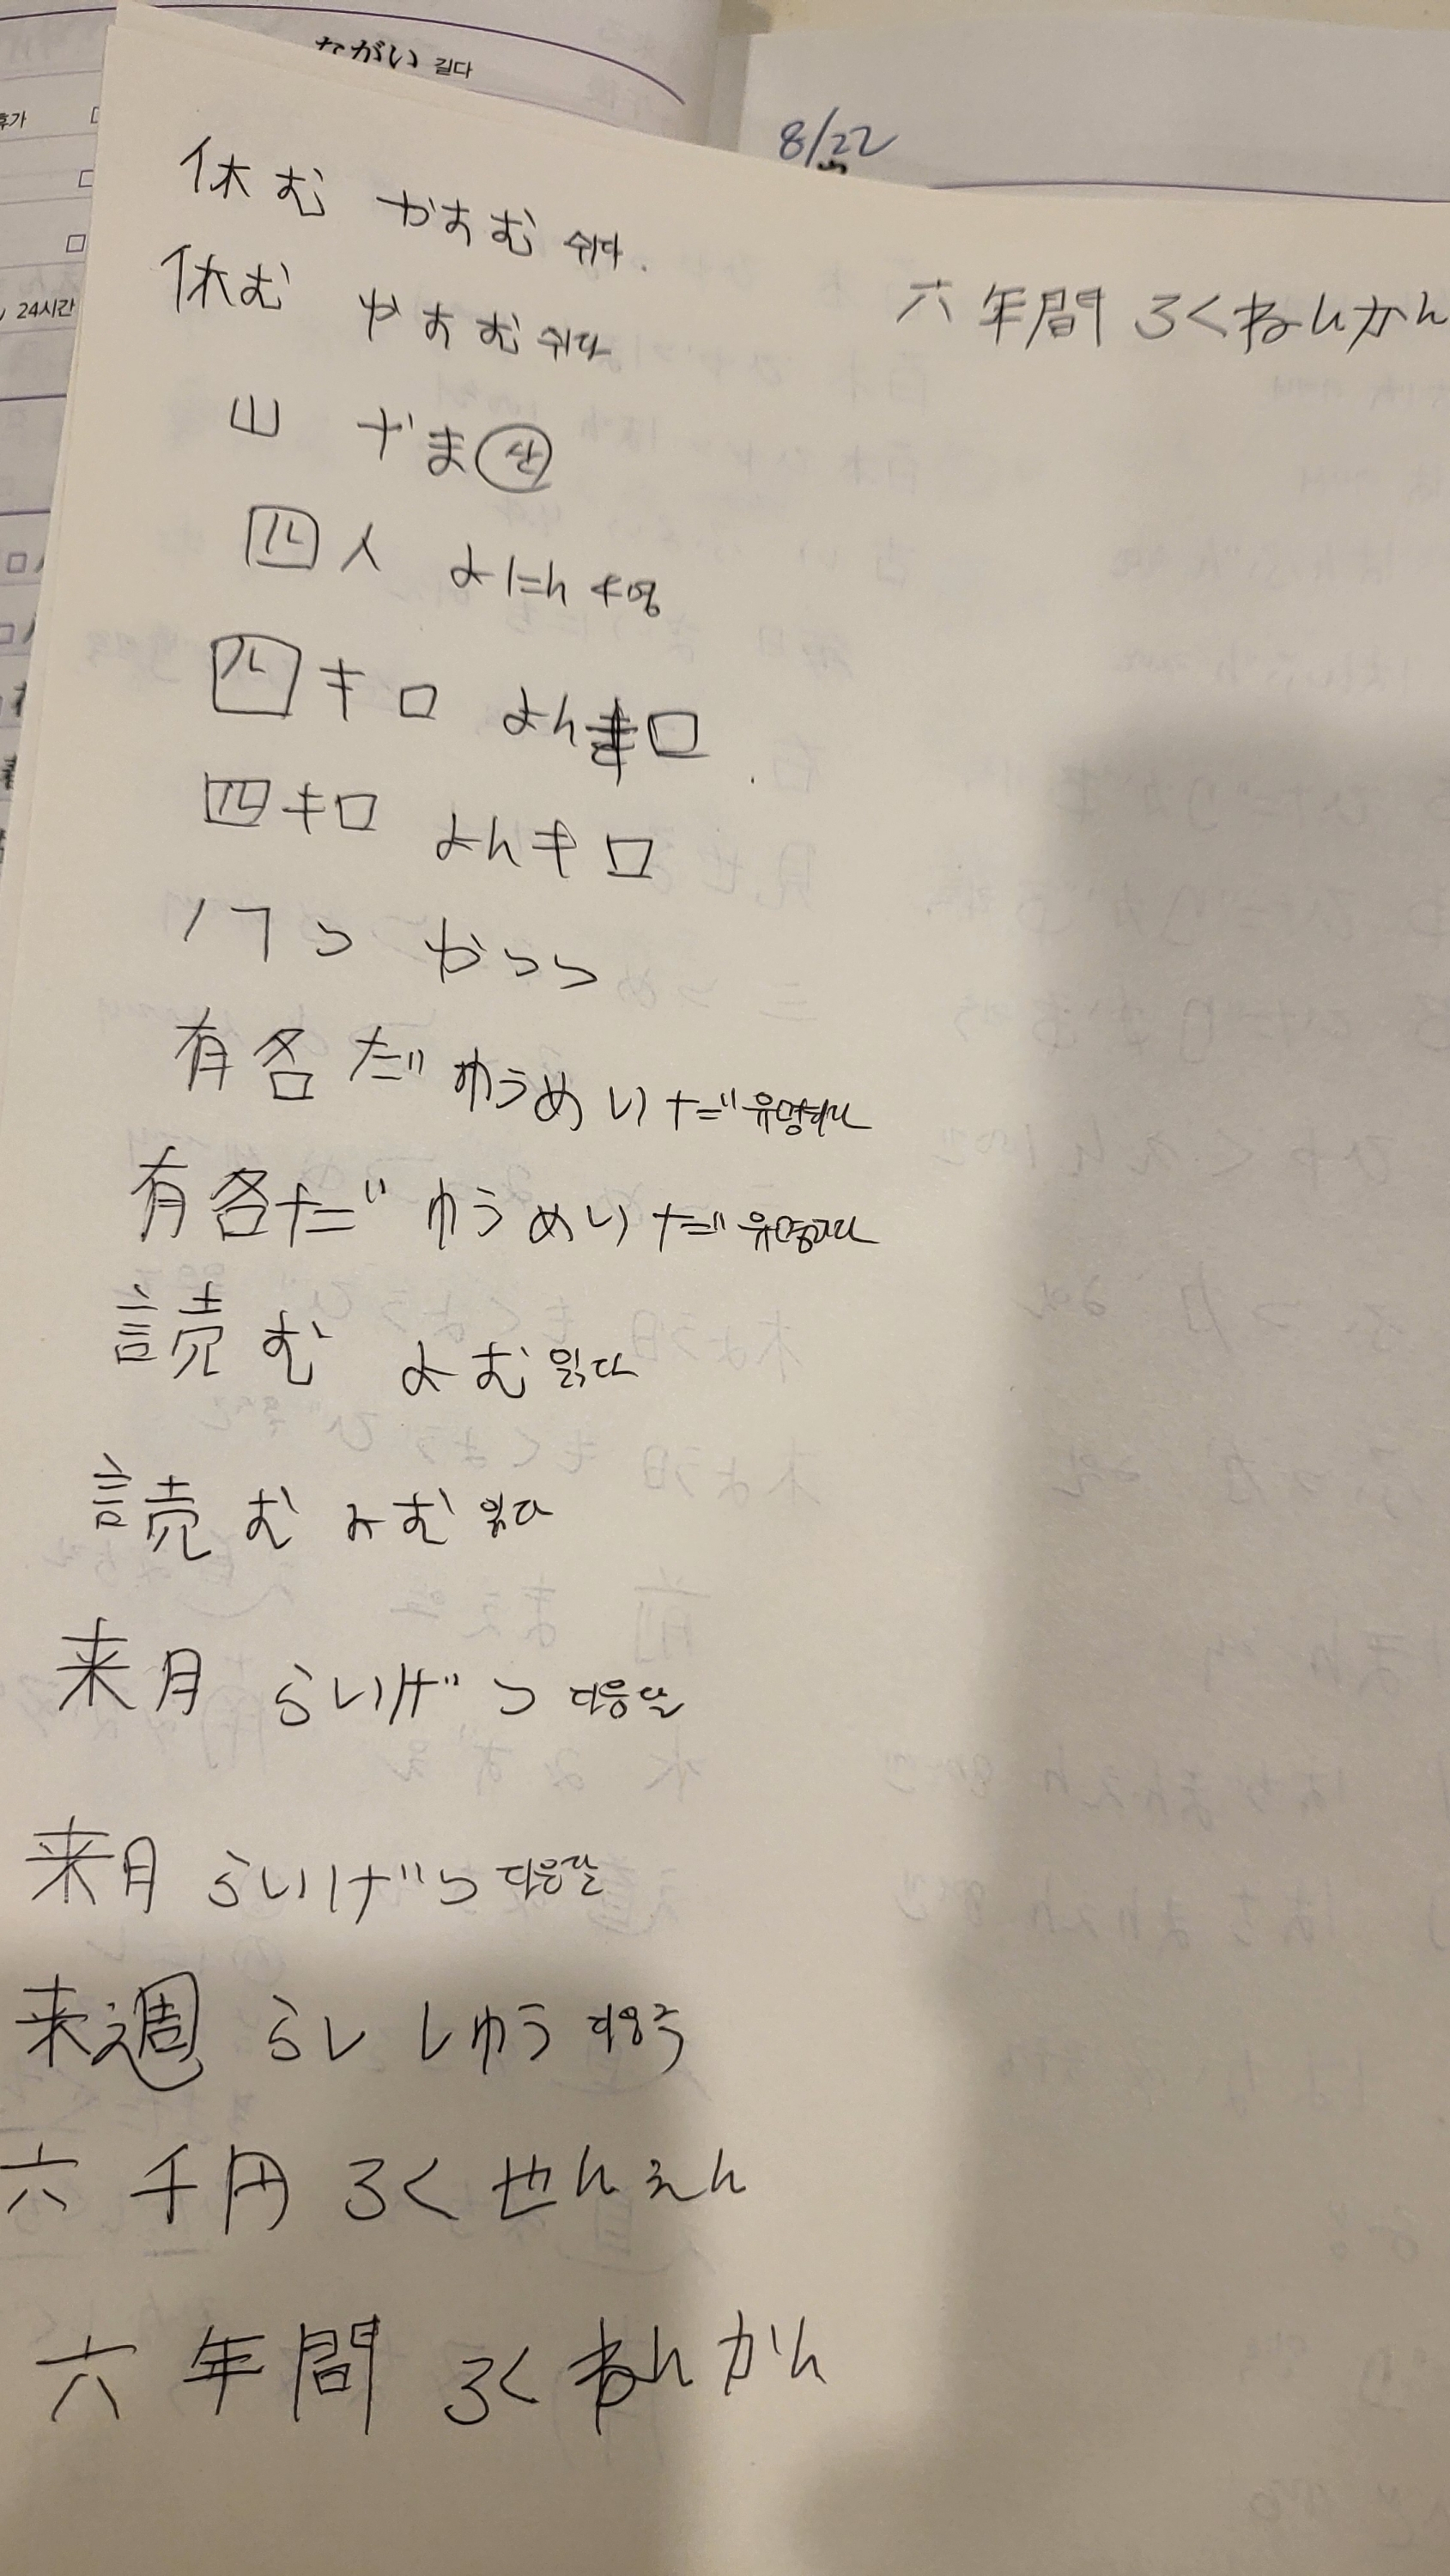 ながい 길다
휴가
24시간
8/22
休む かすむ 쉬다.
休む やすむ 쉬다
山 やま 산
四人 よにん 4명
四キロ よんキロ
四キロ よんキロ
八つ やっつ
有名だ ゆうめいだ 유명하다
有名だ ゆうめいだ 유명하다
読む よむ 읽다
読む よむ 읽다
来月 らいげつ 다음달
来月 らいげつ 다음달
来週 らいしゅう 다음주
六千円 ろくせんえん
六年間 ろくねんかん
六年間 ろくねんかん